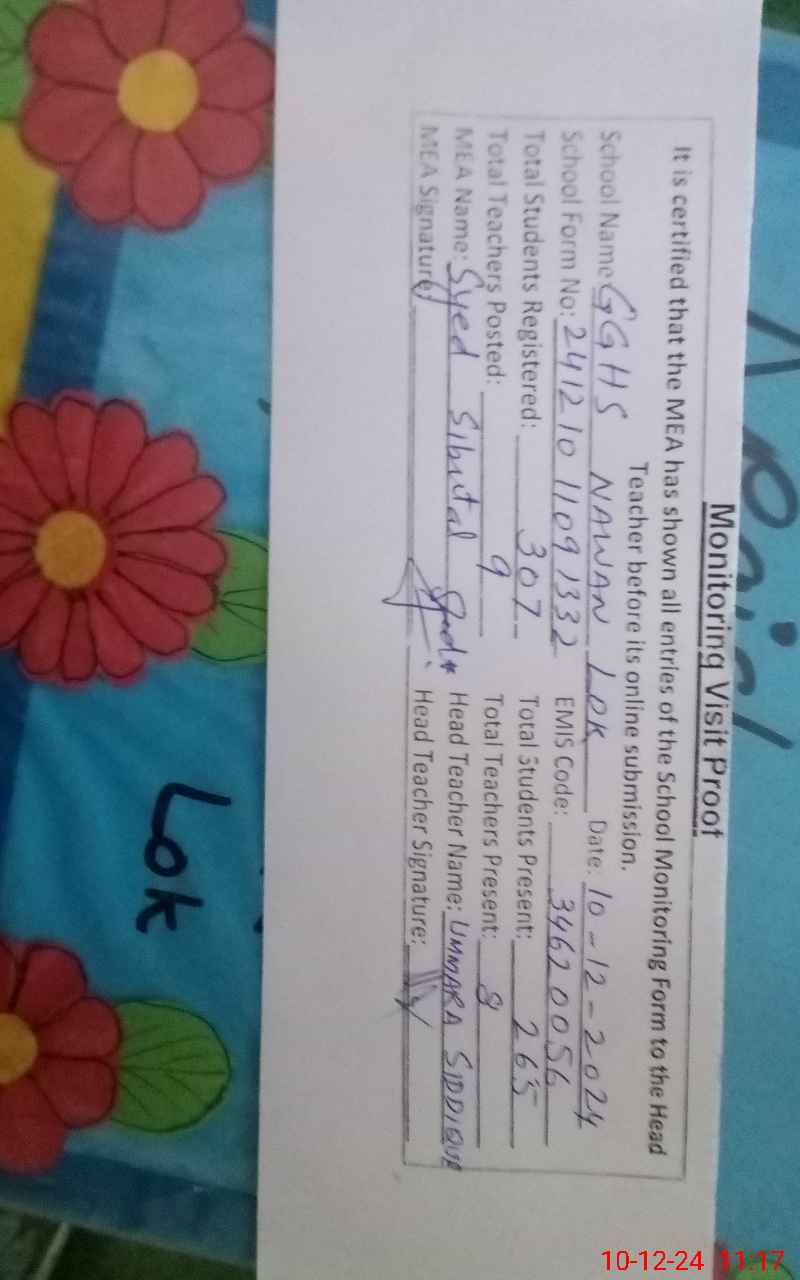 Monitoring Visit Proof
It is certified that the MEA has shown all entries of the School Monitoring Form to the Head
Teacher before its online submission.
School Name GGHS NAWAN LOK Date: 10-12-2024
School Form No: 241210 11091332 EMIS Code: 34620056
Total Students Registered: 307 Total Students Present: 265
Total Teachers Posted: 9 Total Teachers Present: 8
MEA Name: Syed Head Teacher Name: UMMARA SIDDIQUE
MEA Signature: Head Teacher Signature:
Lok
10-12-24 11:17